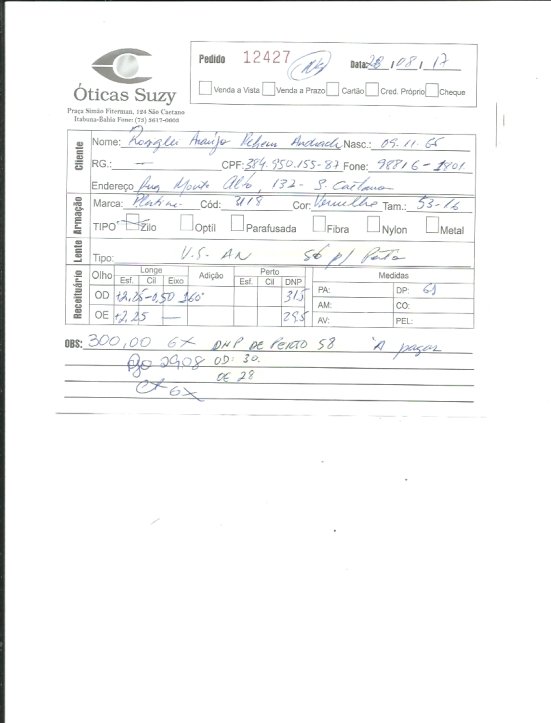 Pedido 12427 Data: 28 / 08 / 17
Venda a Vista Venda a Prazo Cartão Cred. Próprio Cheque
Óticas Suzy
Praça Simão Fiterman, 124 São Caetano
Itabuna-Bahia Fone: (73) 3617-0603
Cliente
Nome: Araújo Andrade Nasc.: 09.11.66
RG.: — CPF: 384.950.155-87 Fone: 98816-1901
Endereço Monte Alto, 132- S. Caetano
Armação
Marca: Platini Cód: 3118 Cor: Vermelho Tam.: 53-16
TIPO Zilo Optil Parafusada Fibra Nylon Metal
Lente
Tipo: V.S - AN Só p/ Perto
Receituário
Olho Longe Adição Perto Medidas
Esf. Cil Eixo Esf. Cil DNP PA: DP: 61
OD +2,25 -0,50 160° 31,5 AM: CO:
OE +2,25 — 29,5 AV: PEL:
OBS: 300,00 6X DNP DE PERTO 58 A pagar
29.08 OD: 30.
OE 28
6X